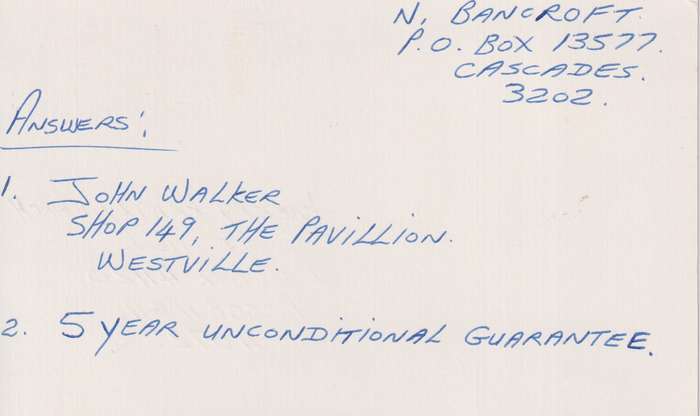 N. BANCROFT.
P.O. BOX 13577.
CASCADES.
3202.
ANSWERS:
1. JOHN WALKER
SHOP 149, THE PAVILLION.
WESTVILLE.
2. 5 YEAR UNCONDITIONAL GUARANTEE.